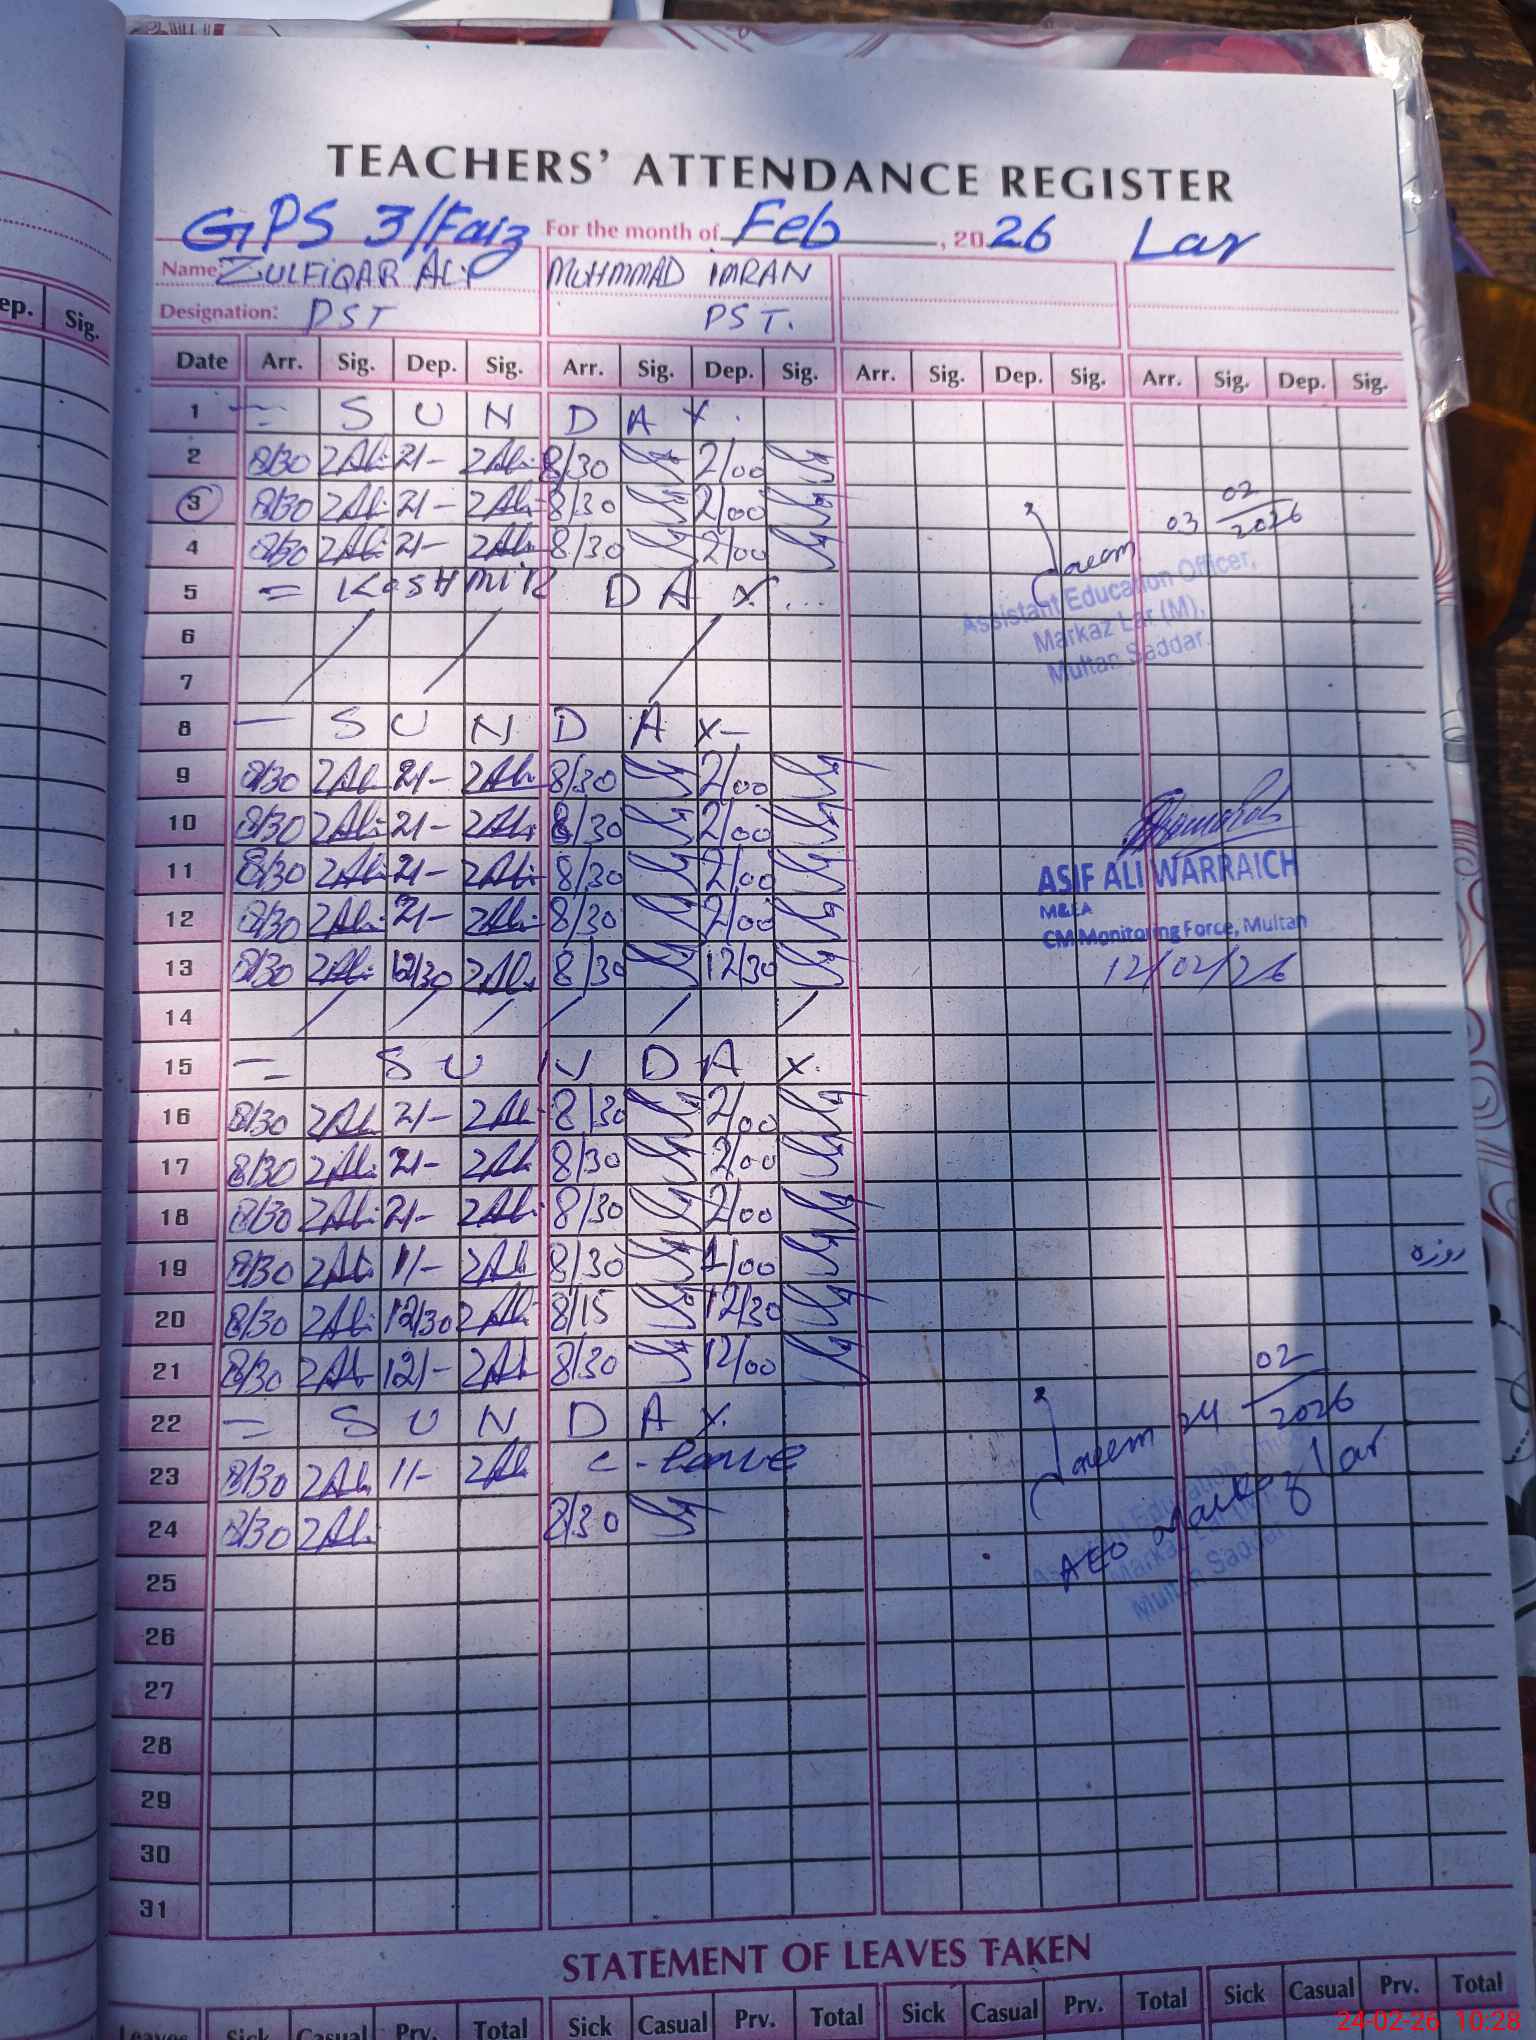 TEACHERS' ATTENDANCE REGISTER
GPS 3/Faiz For the month of Feb, 2026 Lar
Name: ZULFIQAR ALI MUHMMAD IMRAN
Designation: PST PST.
ep. Sig.
Date Arr. Sig. Dep. Sig. Arr. Sig. Dep. Sig. Arr. Sig. Dep. Sig. Arr. Sig. Dep. Sig.
1 = S U N D A Y.
2 8/30 ZAli 2/- ZAli 8/30 2/00
3 8/30 ZAli 2/- ZAli 8/30 2/00 03 02/2026
4 8/30 ZAli 2/- ZAli 8/30 2/00
5 = KASHMIR D A Y...
Assistant Education Officer,
6
Markaz Lar (M),
Multan Saddar
7
8 — S U N D A Y—
9 8/30 ZAli 2/- ZAli 8/30 2/00
10 8/30 ZAli 2/- ZAli 8/30 2/00
11 8/30 ZAli 2/- ZAli 8/30 2/00
ASIF ALI WARRAICH
12 8/30 ZAli 2/- ZAli 8/30 2/00
M&EA
CM Monitoring Force, Multan
13 8/30 ZAli 12/30 ZAli 8/30 12/30 12/02/26
14
15 = S U N D A Y.
16 8/30 ZAli 2/- ZAli 8/30 2/00
17 8/30 ZAli 2/- ZAli 8/30 2/00
18 8/30 ZAli 2/- ZAli 8/30 2/00
19 8/30 ZAli 1/- ZAli 8/30 1/00 روزہ
20 8/30 ZAli 12/30 ZAli 8/15 12/30
21 8/30 ZAli 12/- ZAli 8/30 12/00
22 = S U N D A Y. 24 02/2026
23 8/30 ZAli 1/- ZAli C-leave
24 8/30 ZAli 8/30
AEO Markaz Lar
Markaz Lar (M),
Multan Saddar
25
26
27
28
29
30
31
STATEMENT OF LEAVES TAKEN
Leaves Sick Casual Prv. Total Sick Casual Prv. Total Sick Casual Prv. Total Sick Casual Prv. Total
24-02-26 10:28